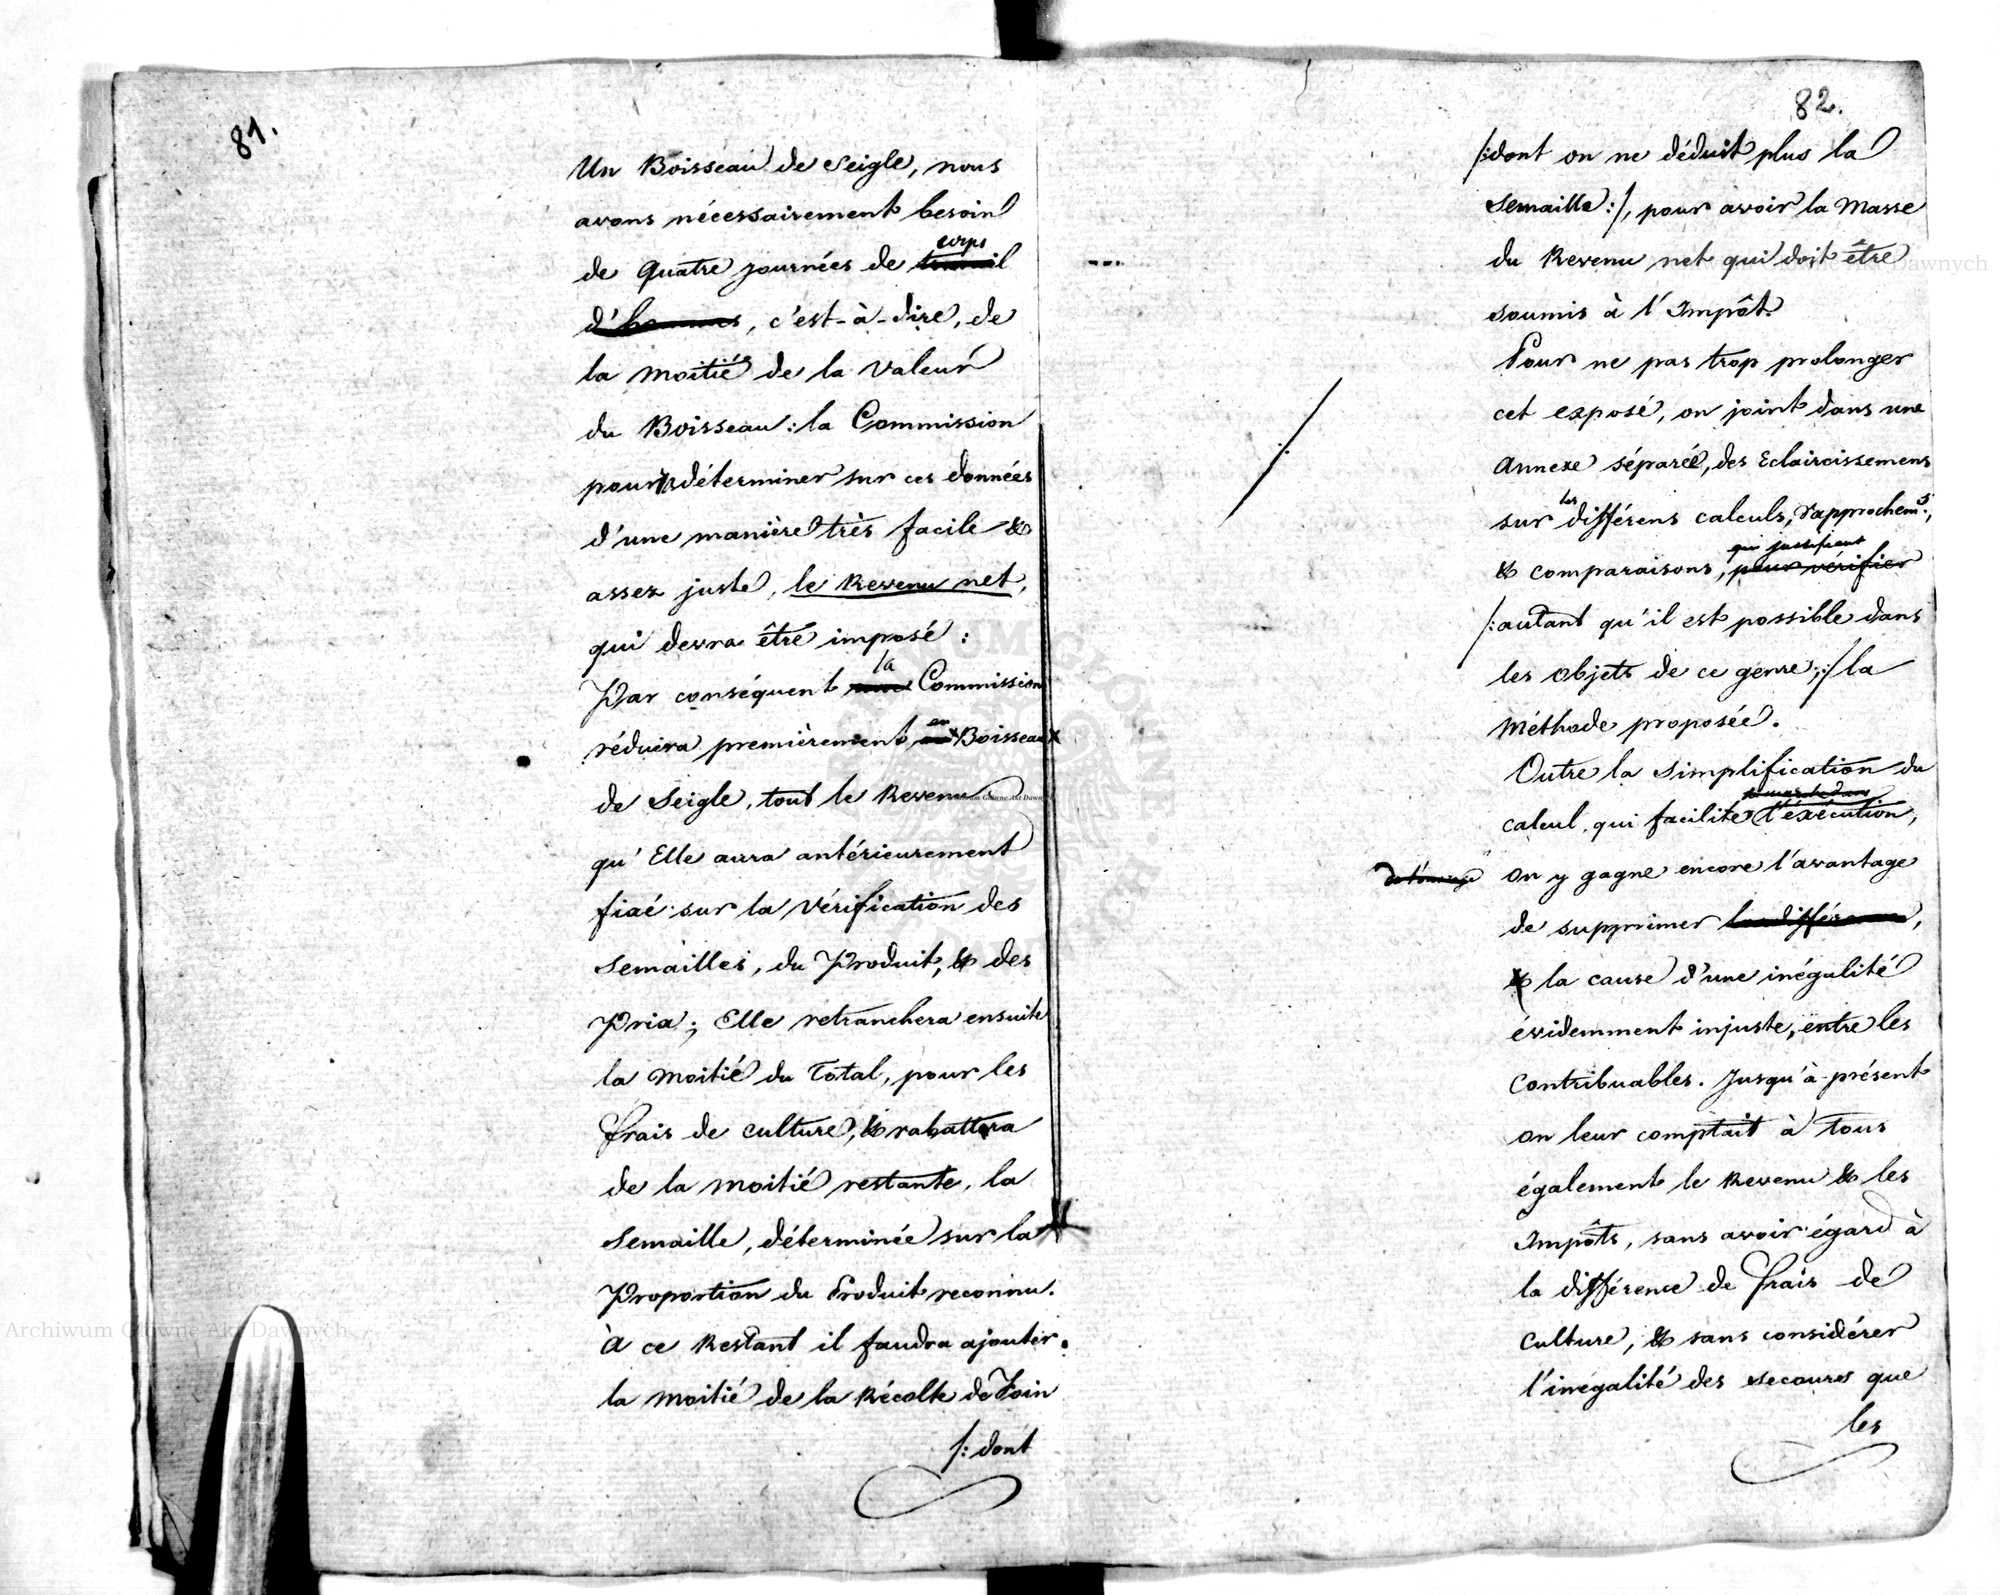 81.
Un Boisseau de Seigle, nous
avons nécessairement besoin
de Quatre journées de travail corps
d'hommes, c'est-à-dire, de
la moitié de la valeur
du Boisseau: la Commission
pourra déterminer sur ces données
d'une manière très facile &
assez juste, le Revenu net,
qui devra être imposé:
Par conséquent la Commission
réduira premièrement en Boisseaux
de Seigle, tout le Revenu
qu'Elle aura antérieurement
fixé sur la vérification des
Semailles, du Produit, & des
Prix; Elle retranchera ensuite
la moitié du Total, pour les
frais de culture, & rabattera
de la moitié restante, la
Semaille, déterminée sur la
Proportion du Produit reconnu.
À ce Restant il faudra ajouter
la moitié de la Récolte de Foin
/: dont
82.
/:dont on ne déduit plus la
Semaille:/, pour avoir la Masse
du Revenu net qui doit être
soumis à l'Impôt.
Pour ne pas trop prolonger
cet exposé, on joint dans une
Annexe séparée, des Eclaircissemens
sur les différens calculs, rapprochem.s,
& comparaisons, qui justifient pour vérifier
/: autant qu'il est possible dans
les objets de ce genre;:/ la
Méthode proposée.
Outre la simplification du
calcul, qui facilite la marche dans l'éxécution,
de l'ouvrage
on y gagne encore l'avantage
de supprimer
& la cause d'une inégalité
évidemment injuste, entre les
Contribuables. Jusqu'à présent
on leur comptait à tous
également le Revenu & les
Impôts, sans avoir égard à
la différence de frais de
Culture, & sans considérer
l'inégalité des secours que
les
Archiwum Główne Akt Dawnych